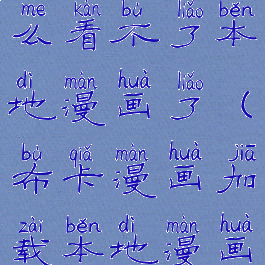 me kàn bù liǎo běn
么看不了本
dì màn huà liǎo
地漫画了(
bù qiǎ màn huà jiā
布卡漫画加
zài běn dì màn huà
载本地漫画